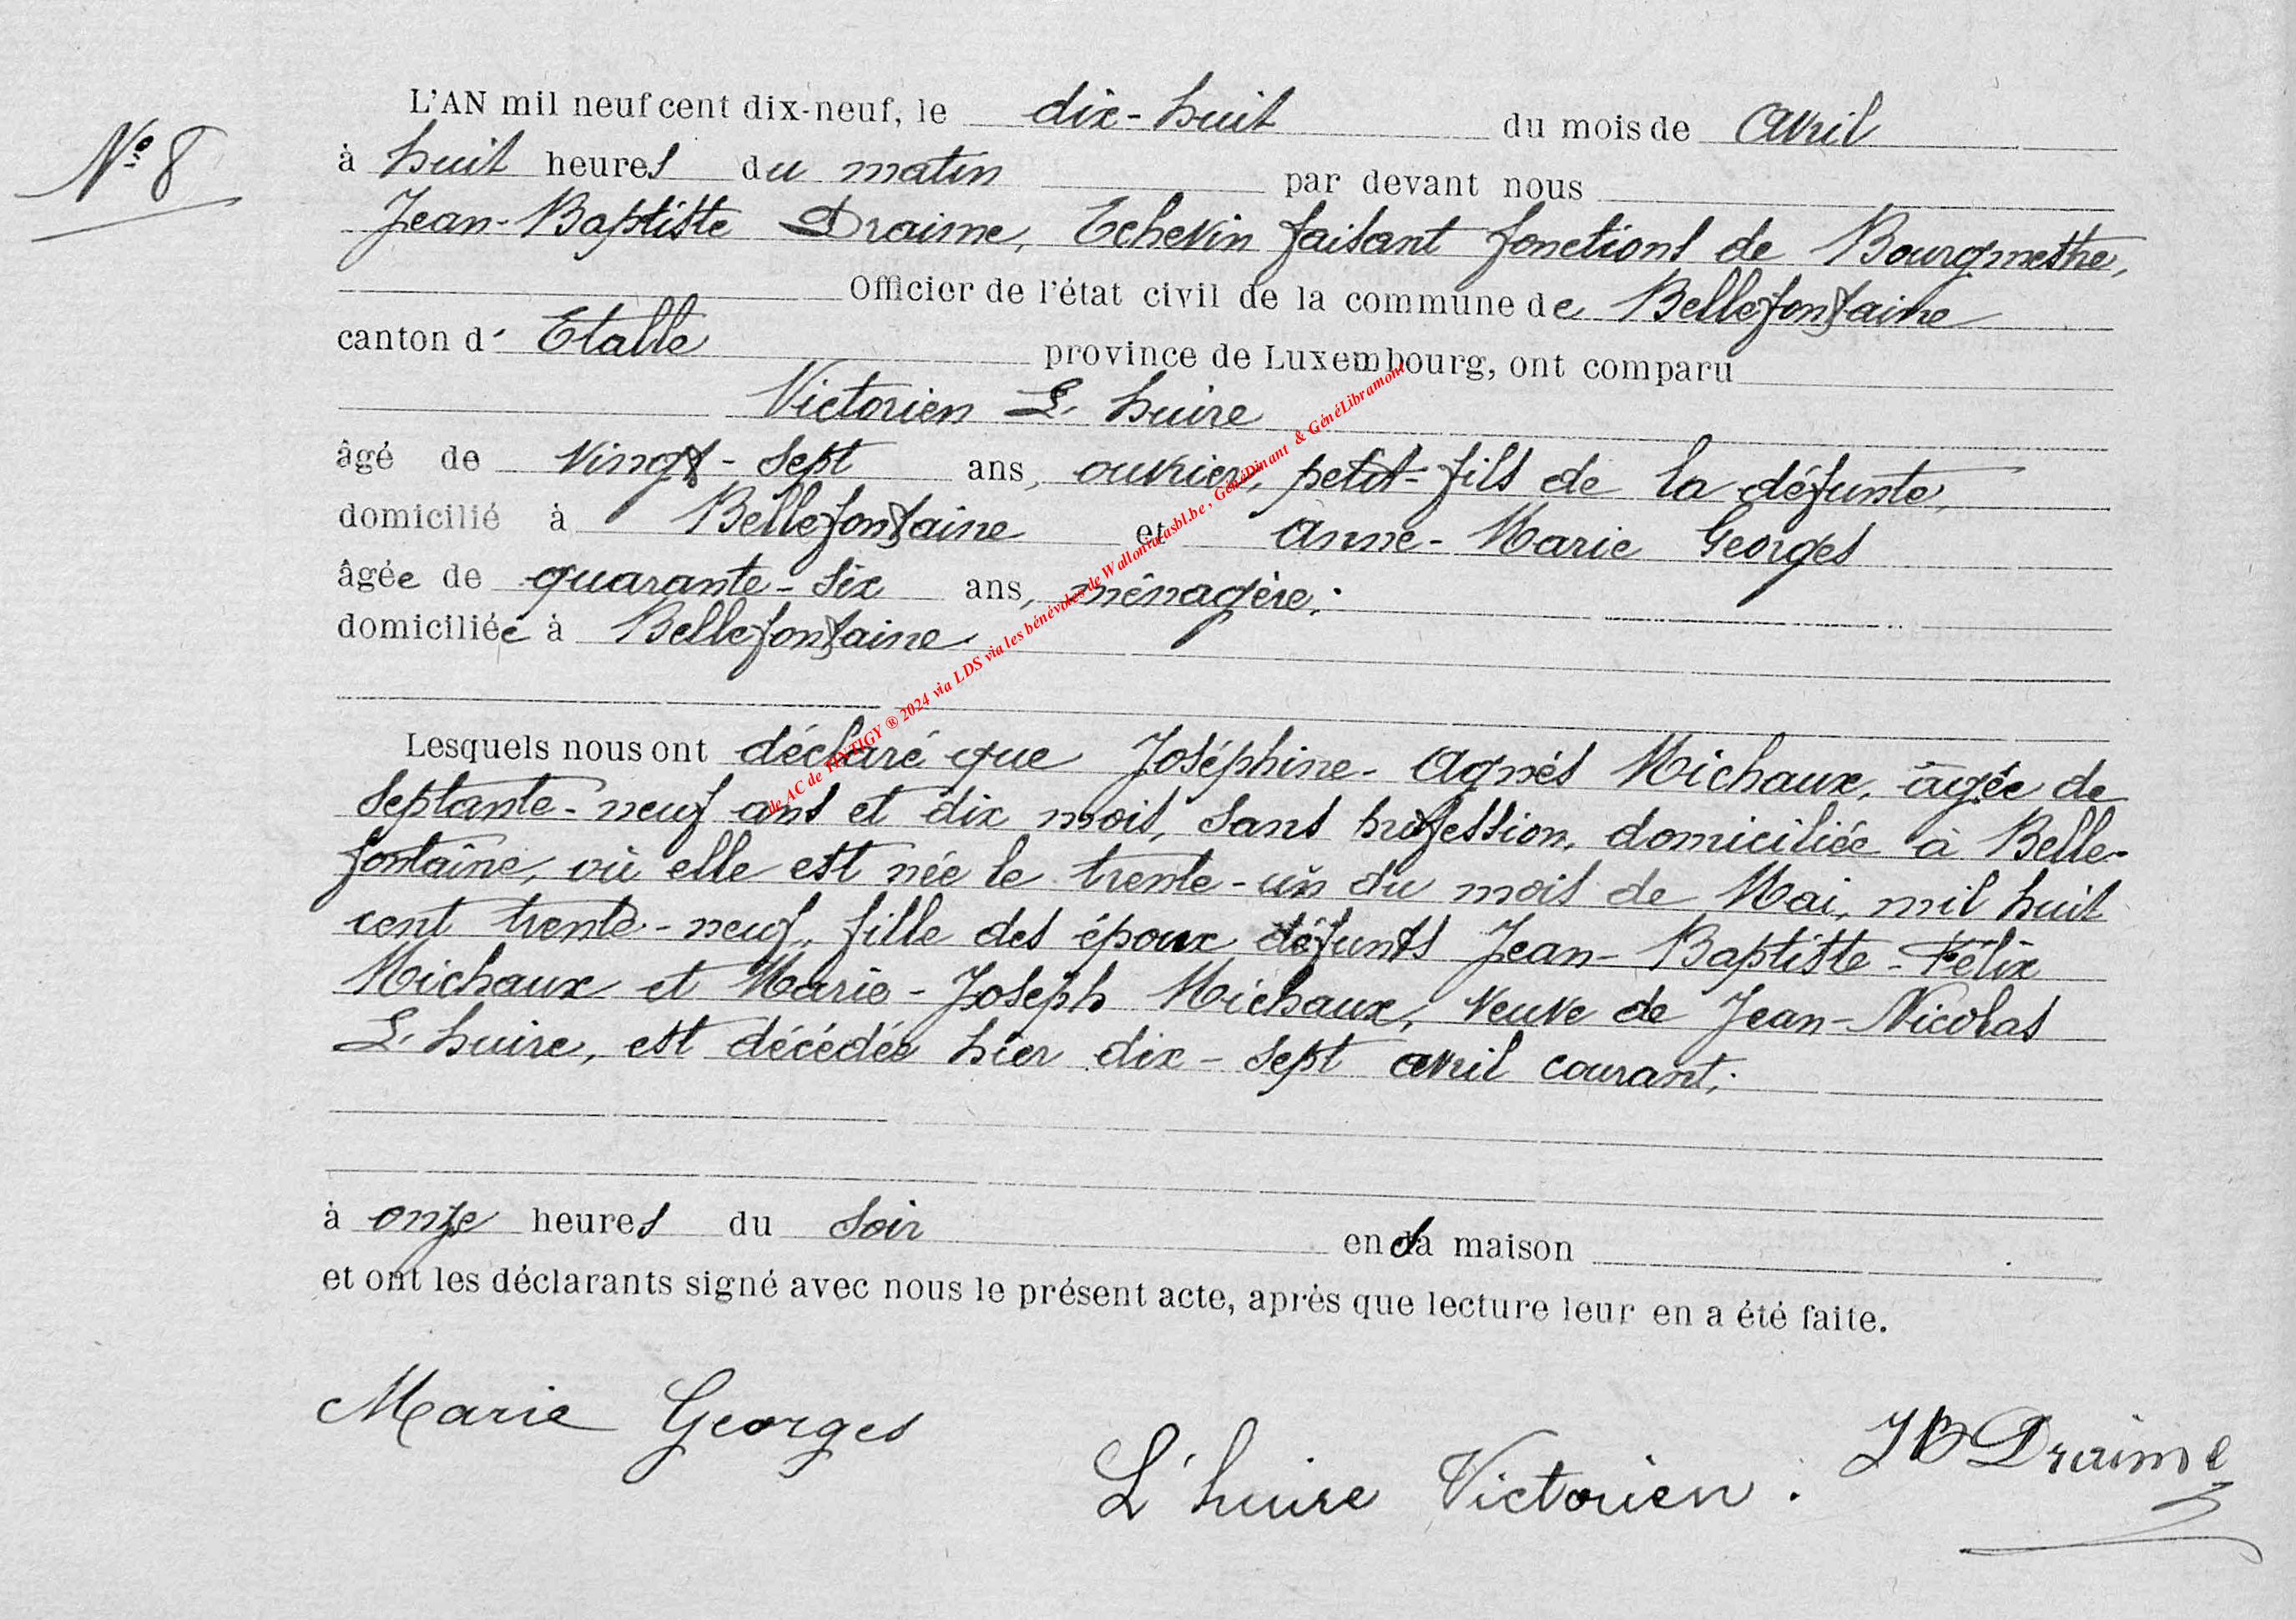 L'AN mil neuf cent dix-neuf, le dix-huit du mois de avril
N° 8
à huit heures du matin par devant nous
Jean-Baptiste Draime, Echevin faisant fonctions de Bourgmestre,
Officier de l'état civil de la commune de Bellefontaine
canton d' Etalle province de Luxembourg, ont comparu
Victorien L'huire
âgé de vingt-sept ans, ouvrier, petit-fils de la défunte,
domicilié à Bellefontaine et Anne-Marie Georges
âgée de quarante-six ans, ménagère,
domiciliée à Bellefontaine
Lesquels nous ont déclaré que Joséphine-Agnès Michaux, âgée de
septante-neuf ans et dix mois, sans profession, domiciliée à Belle-
fontaine, où elle est née le trente-un du mois de Mai, mil huit
cent trente-neuf, fille des époux défunts Jean-Baptiste-Félix
Michaux et Marie-Joseph Michaux, veuve de Jean-Nicolas
L'huire, est décédée hier dix-sept avril courant,
à onze heures du soir en sa maison
et ont les déclarants signé avec nous le présent acte, après que lecture leur en a été faite.
Marie Georges
L'huire Victorien.
JB Draime
de AC de TINTIGY ® 2024 via LDS via les bénévoles de Walloniaasbl.be, GénéDinant & GénéLibramont